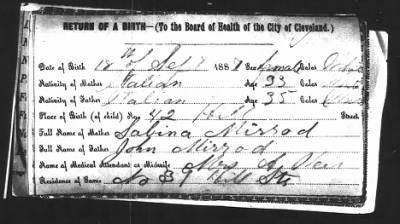 RETURN OF A BIRTH—(To the Board of Health of the City of Cleveland.)
Date of Birth 18th of Sept 1887 Sex female Color White
Nativity of Mother Italian Age 33 Color
Nativity of Father Italian Age 35 Color
Place of Birth (of child) No 42 Hill Street
Full Name of Mother Sabina Mirrod
Full Name of Father John Mirrodi
Name of Medical Attendant or Midwife Mrs A
Residence of Same No 39 Hill Str